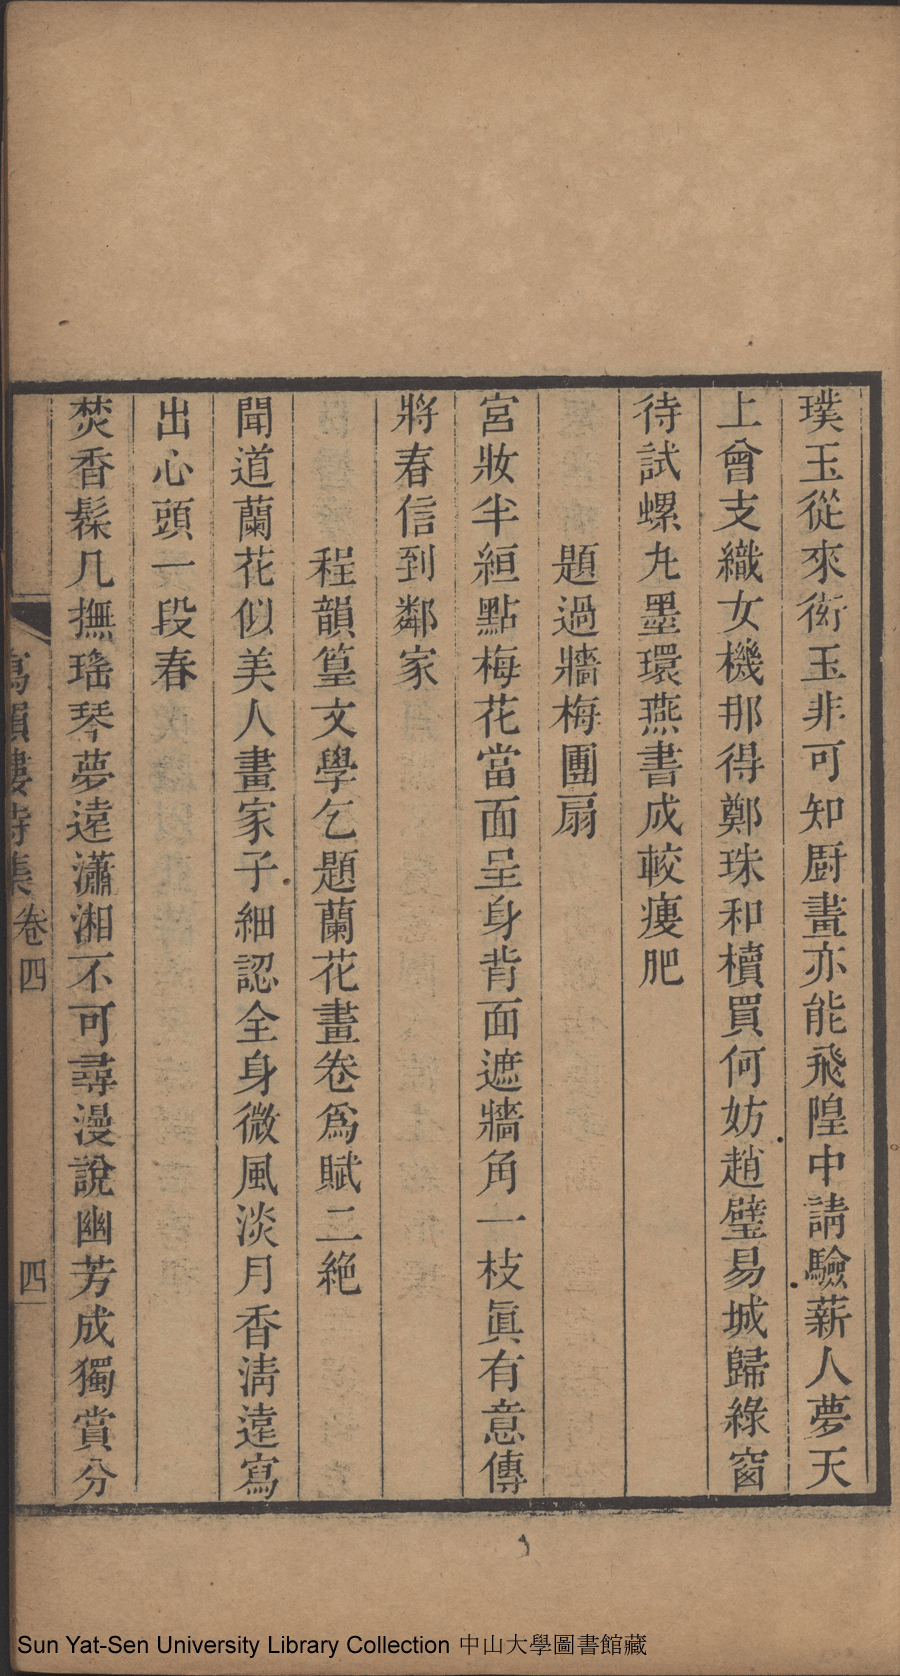 璞玉從來衒玉非可知厨畫亦能飛隍中請驗薪人夢天
上曾支織女機那得鄭珠和櫝買何妨趙璧易城歸綠窗
待試螺丸墨環燕書成較痩肥
題過牆梅團扇
宮妝半絙點梅花當面呈身背面遮牆角一枝眞有意傳
將春信到鄰家
程韻篁文學乞題蘭花畫卷爲賦二絶
聞道蘭花似美人畫家子細認全身微風淡月香淸遠寫
出心頭一段春
焚香髹几撫瑤琴夢遠瀟湘不可尋漫說幽芳成獨賞分
寫韻樓詩集卷四 四
Sun Yat-Sen University Library Collection 中山大學圖書館藏